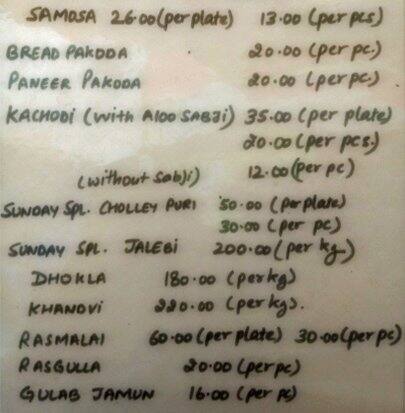 SAMOSA 26.00 (per plate) 13.00 (per pcs)
BREAD PAKODA 20.00 (per pc.)
PANEER PAKODA 20.00 (per pc.)
KACHODI (with Aloo SABJi) 35.00 (per plate)
20.00 (per pcs.)
(without Sabji) 12.00 (per pc)
SUNDAY SPL. CHOLLEY PURI 50.00 (per plate)
30.00 (per pc)
SUNDAY SPL. JALEBI 200.00 (per kg.)
DHOKLA 180.00 (per kg)
KHANDVI 220.00 (per kg).
RASMALAI 60.00 (per plate) 30.00 (per pc)
RASGULLA 20.00 (per pc)
GULAB JAMUN 16.00 (per pc)